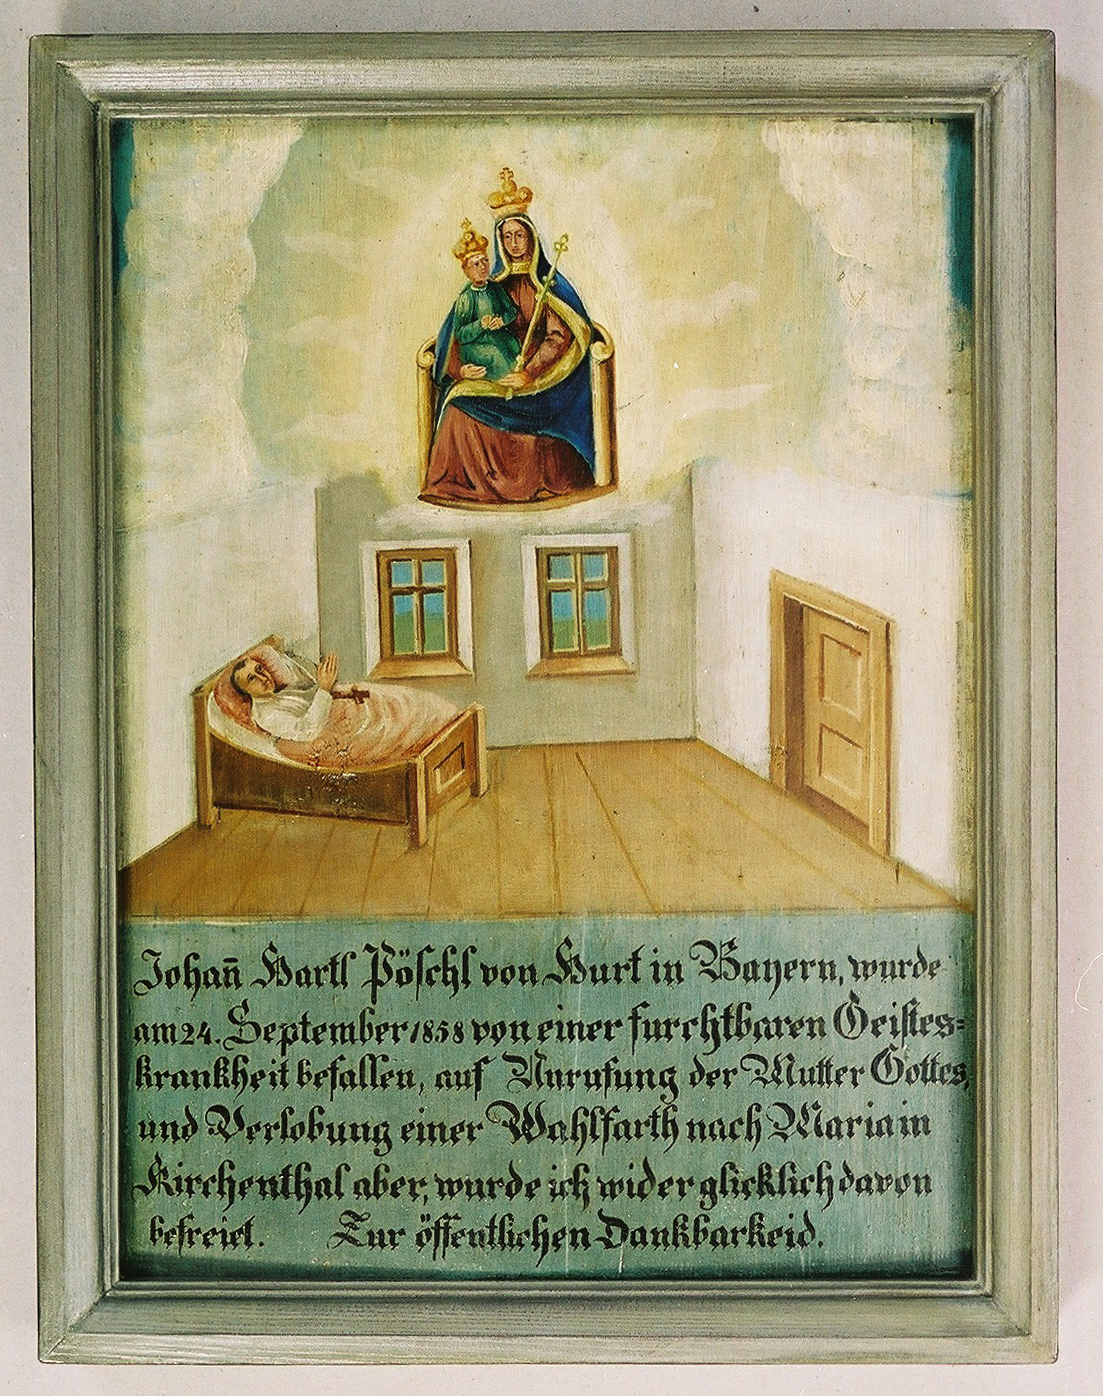 Johan̄ Hartl Pöschl von Hurt in Bayern, wurde
am 24. September 1858 von einer furchtbaren Geistes=
krankheit befallen, auf Anrufung der Mutter Gottes,
und Verlobung einer Wahlfarth nach Maria in
Kirchenthal aber, wurde ich wider glicklich davon
befreiet. Zur öffentlichen Dankbarkeid.